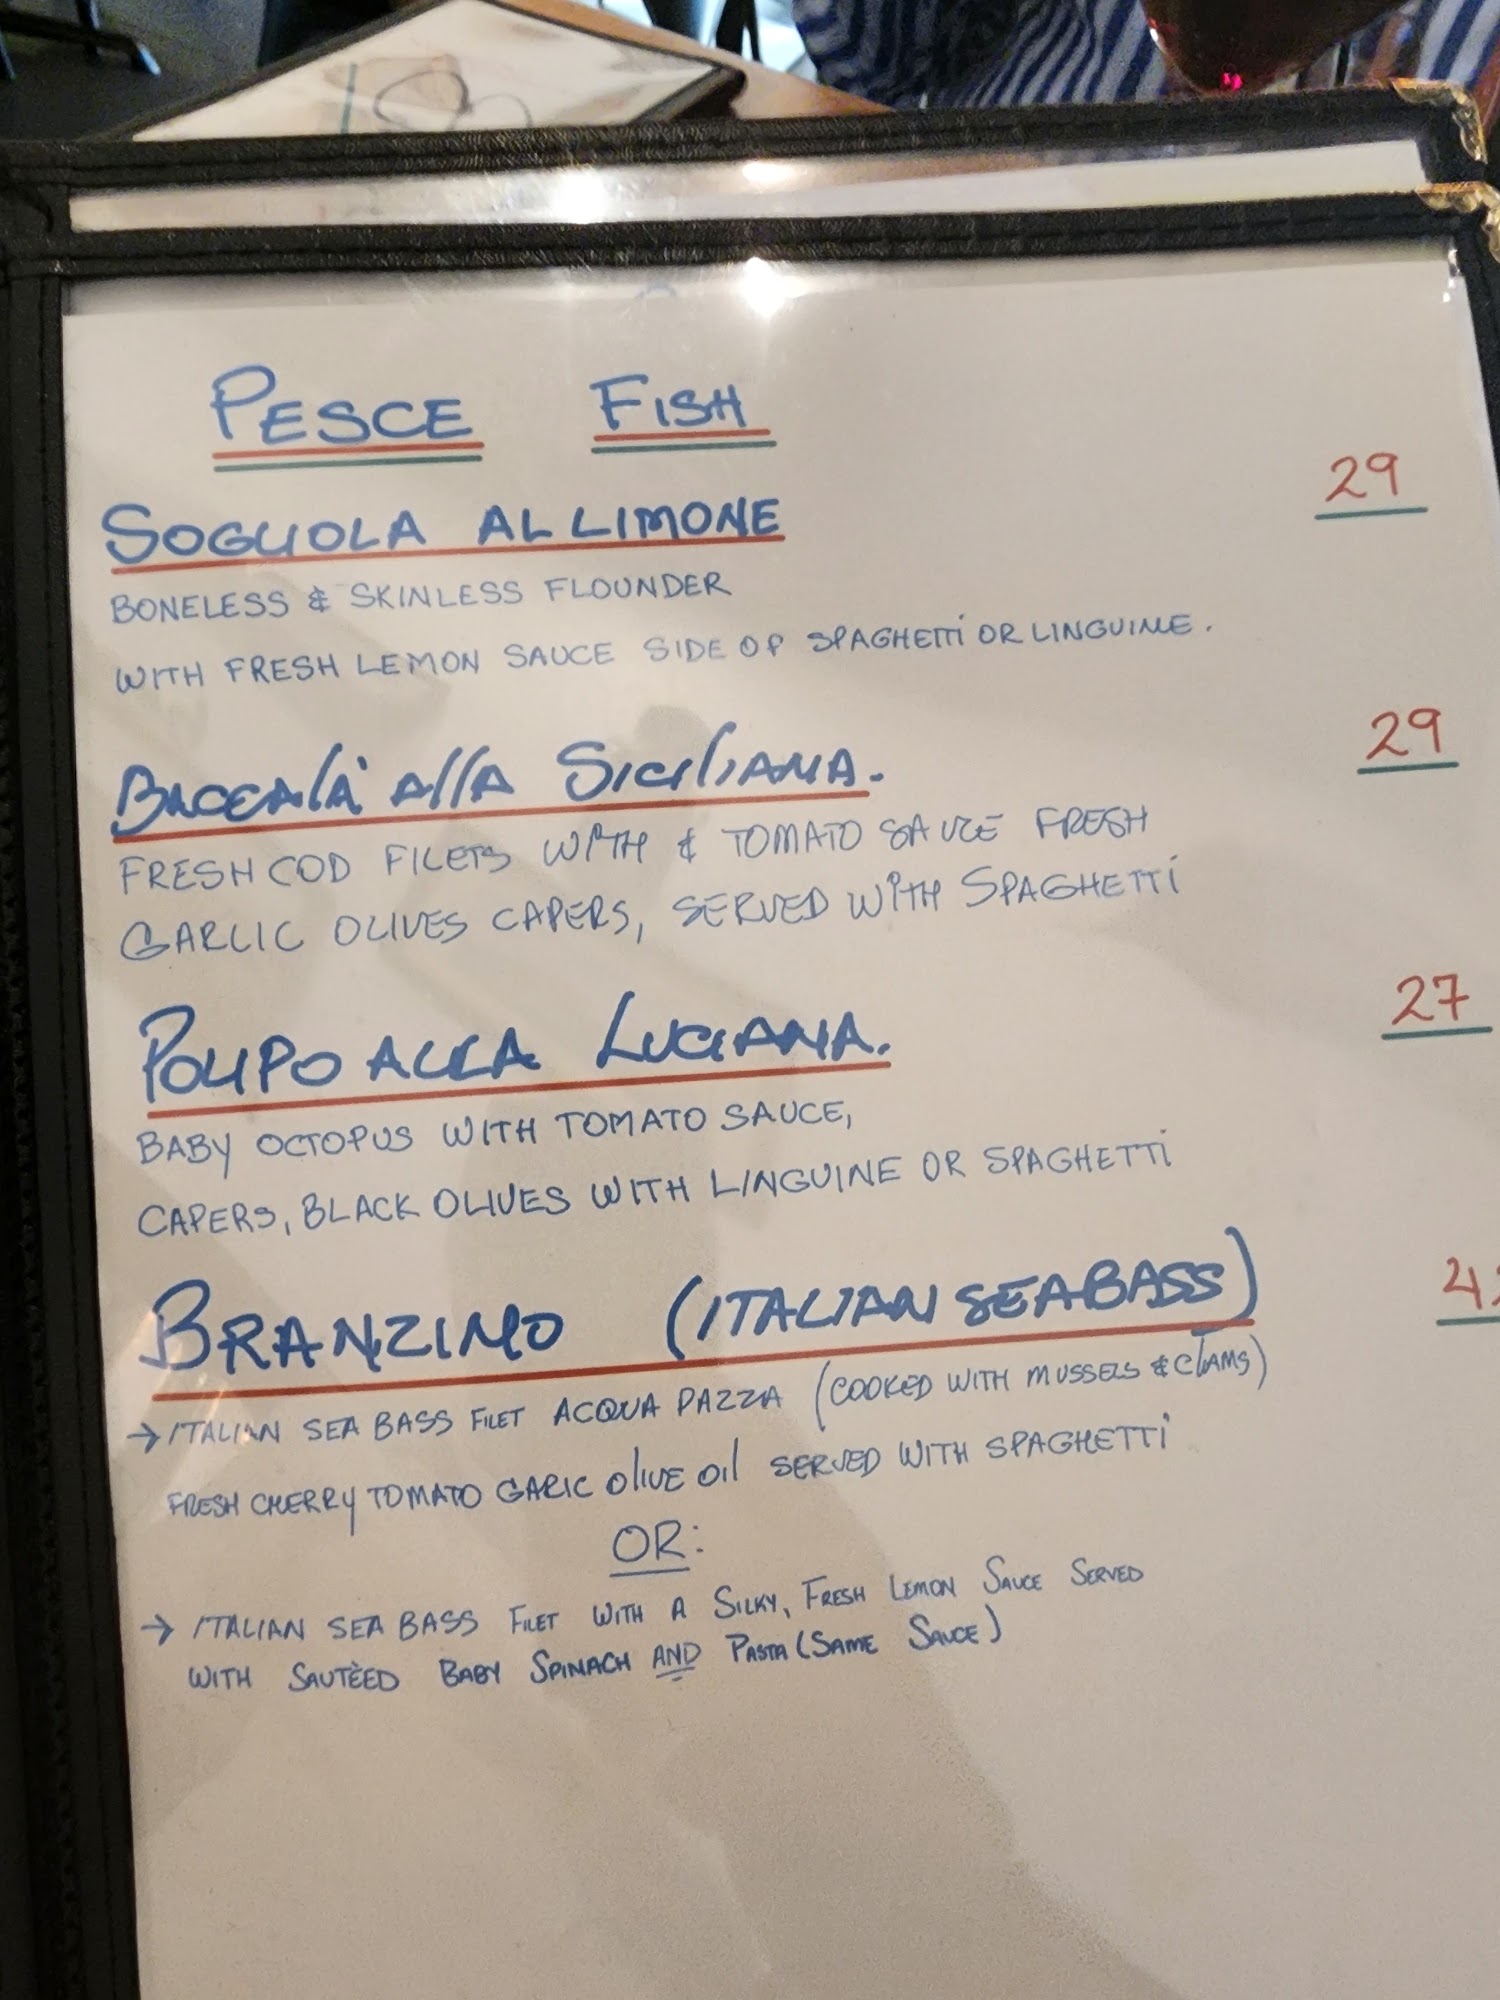 PESCE FISH
SOGLIOLA AL LIMONE 29
BONELESS & SKINLESS FLOUNDER
WITH FRESH LEMON SAUCE SIDE OF SPAGHETTI OR LINGUINE.
BACCALÀ AllA SICILIANA. 29
FRESH COD FILETS WITH & TOMATO SAUCE FRESH
GARLIC OLIVES CAPERS, SERVED WITH SPAGHETTI
POLIPO ALLA LUCIANA. 27
BABY OCTOPUS WITH TOMATO SAUCE,
CAPERS, BLACK OLIVES WITH LINGUINE OR SPAGHETTI
BRANZINO (ITALIAN SEA BASS)
→ ITALIAN SEA BASS FILET ACQUA PAZZA (COOKED WITH MUSSELS & CLAMS)
FRESH CHERRY TOMATO GARIC OLIVE OIL SERVED WITH SPAGHETTI
OR:
→ ITALIAN SEA BASS FILET WITH A SILKY, FRESH LEMON SAUCE SERVED
WITH SAUTÈED BABY SPINACH AND PASTA (SAME SAUCE)